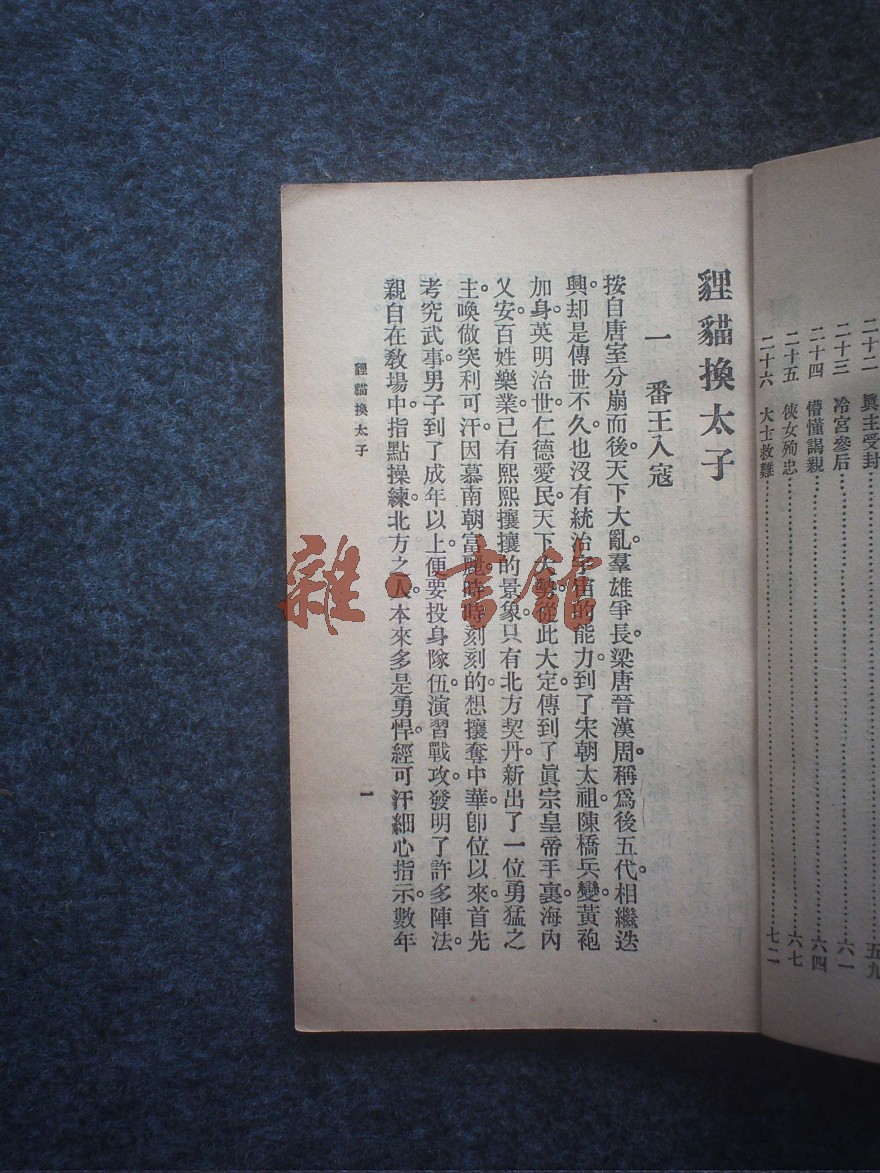 二十二 眞主受封 五九
二十三 冷宮參后 六一
二十四 懵懂謁親 六四
二十五 俠女殉忠 六七
二十六 大士救難 七二
貍貓換太子
一 番王入寇
按自唐室分崩而後。天下大亂。羣雄爭長。梁唐晉漢周。稱爲後五代。相繼迭
興。却是傳世不久。也沒有統治宇宙的能力。到了宋朝太祖。陳橋兵變。黃袍
加身。英明治世。仁德愛民。天下大勢。從此大定。傳到了眞宗皇帝手裏。海內
乂安。百姓樂業。已有熙熙攘攘的景象。只有北方契丹。新出了一位勇猛之
主。喚做突利可汗。因慕南朝富麗。時時刻刻的想攘奪中華。卽位以來。首先
考究武事。男子到了成年以上。便要投身隊伍。演習戰攻。發明了許多陣法。
親自在敎場中。指點操練。北方之人。本來多是勇悍。經可汗細心指示。數年
貍貓換太子 一
雜·書館